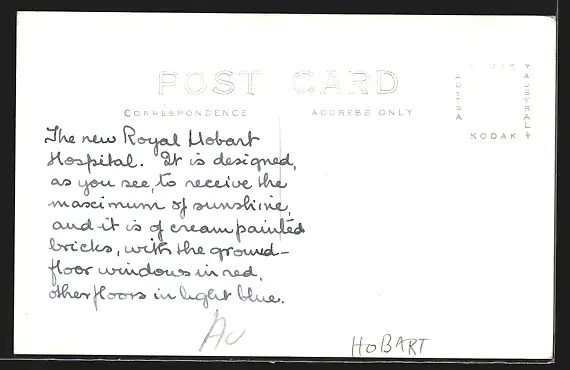 POST CARD
CORRESPONDENCE ADDRESS ONLY
AUSTRAL
KODAK
The new Royal Hobart
Hospital. It is designed,
as you see, to receive the
maximum of sunshine,
and it is of cream painted
bricks, with the ground-
floor windows in red,
other floors in light blue.
Au
HOBART